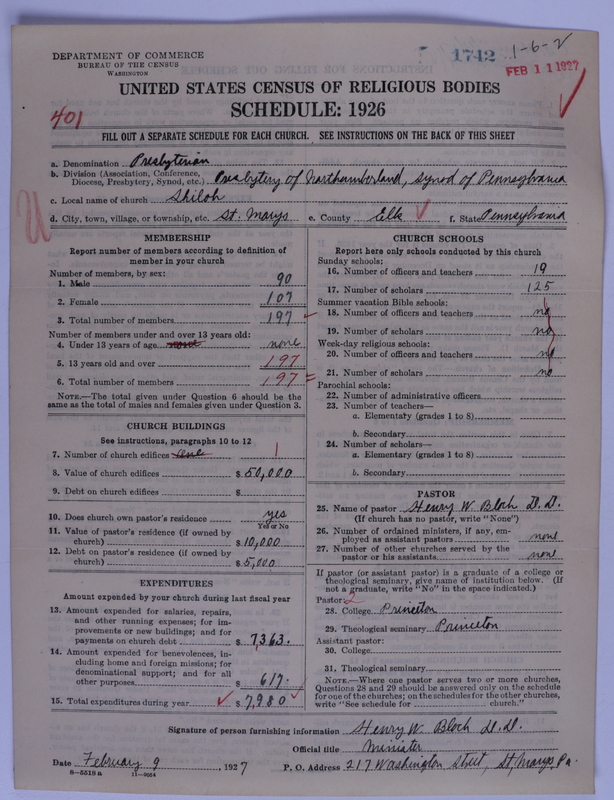 DEPARTMENT OF COMMERCE
BUREAU OF THE CENSUS
WASHINGTON
1742
1-6-2
FEB 11 1927
UNITED STATES CENSUS OF RELIGIOUS BODIES
SCHEDULE: 1926
401
FILL OUT A SEPARATE SCHEDULE FOR EACH CHURCH. SEE INSTRUCTIONS ON THE BACK OF THIS SHEET
a. Denomination Presbyterian
b. Division (Association, Conference, Diocese, Presbytery, Synod, etc.) Presbytery of Northumberland, Synod of Pennsylvania
c. Local name of church Shiloh
d. City, town, village, or township, etc. St. Marys e. County Elk f. State Pennsylvania
MEMBERSHIP
Report number of members according to definition of
member in your church
Number of members, by sex:
1. Male 90
2. Female 107
3. Total number of members 197
Number of members under and over 13 years old:
4. Under 13 years of age none
5. 13 years old and over 197
6. Total number of members 197
NOTE.—The total given under Question 6 should be
same as the total of males and females given under Question 3.
CHURCH BUILDINGS
See instructions, paragraphs 10 to 12
7. Number of church edifices one 1
8. Value of church edifices $ 50,000
9. Debt on church edifices $
10. Does church own pastor's residence yes
Yes or No
11. Value of pastor's residence (if owned by
church) $ 10,000
12. Debt on pastor's residence (if owned by
church) $ 5,000
EXPENDITURES
Amount expended by your church during last fiscal year
13. Amount expended for salaries, repairs,
and other running expenses; for im-
provements or new buildings; and for
payments on church debt $ 7,363.
14. Amount expended for benevolences, in-
cluding home and foreign missions; for
denominational support; and for all
other purposes $ 617.
15. Total expenditures during year $ 7,980
CHURCH SCHOOLS
Report here only schools conducted by this church
Sunday schools:
16. Number of officers and teachers 19
17. Number of scholars 125
Summer vacation Bible schools:
18. Number of officers and teachers no
19. Number of scholars no
Week-day religious schools:
20. Number of officers and teachers no
21. Number of scholars no
Parochial schools:
22. Number of administrative officers
23. Number of teachers—
a. Elementary (grades 1 to 8)
b. Secondary
24. Number of scholars—
a. Elementary (grades 1 to 8)
b. Secondary
PASTOR
25. Name of pastor Henry W. Bloch D.D.
(If church has no pastor, write "None")
26. Number of ordained ministers, if any, em-
ployed as assistant pastors none
27. Number of other churches served by the
pastor or his assistants none
If pastor (or assistant pastor) is a graduate of a college or
theological seminary, give name of institution below. (If
not a graduate, write "No" in the space indicated.)
Pastor: 2
28. College Princeton
29. Theological seminary Princeton
Assistant pastor:
30. College
31. Theological seminary
NOTE.—Where one pastor serves two or more churches,
Questions 28 and 29 should be answered only on the schedule
for one of the churches; on the schedules for the other churches,
write "See schedule for church."
Signature of person furnishing information Henry W. Bloch D.D.
Official title Minister
Date February 9, 1927 P. O. Address 217 Washington Street, St. Marys, Pa.
8—5518 a 11—9664